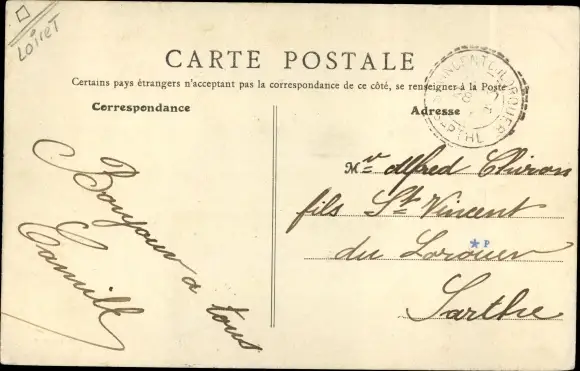 Loiret
CARTE POSTALE
Certains pays étrangers n'acceptant pas la correspondance de ce côté, se renseigner à la Poste
Correspondance
Adresse
Bonjour a tous
Camille
Mr Alfred Chiron
fils St Vincent
du Lorouer
Sarthe
*P